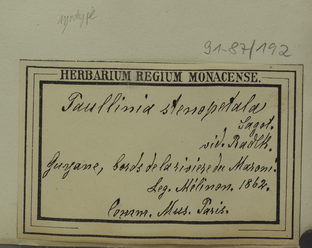 isotype
91-87/192
HERBARIUM REGIUM MONACENSE.
Paullinia stenopetala
Sagot.
vid. Radlk.
Guyane, bords de la rivière du Maroni.
Leg. Mélinon. 1862.
Comm. Mus. Paris.